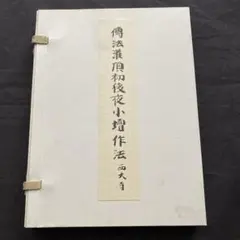 傳法灌頂初後夜小壇作法 西大寺